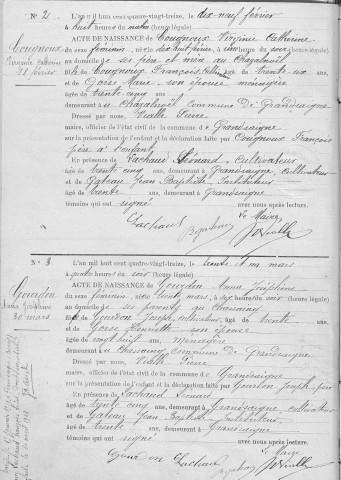 N° 2
Cougnoux
Virginie Catherine
L'an mil huit cent quatre-vingt-treize, le dix neuf février
à huit heures du matin (heure légale)
ACTE DE NAISSANCE de Cougnoux Virginie Catherine
du sexe féminin, né le dix huit février, à heures du soir (heure légale)
au domicile de ses père et mère au Chazalnoël
fille de Cougnoux François, cultivateur, âgé de trente six ans,
et de Marie son épouse ménagère
âgée de trente cinq ans
demeurant à Chazalnoël commune de Grandsaigne
Dressé par nous, Vialle Pierre
maire, officier de l'état civil de la commune de Grandsaigne
sur la présentation de l'enfant et la déclaration faite par Cougnoux François
père de l'enfant
En présence de Lachaud Léonard, cultivateur
âgé de trente cinq ans, demeurant à Grandsaigne, cultivateur
et de Gateau Jean Baptiste Instituteur
âgé de trente ans, demeurant à Grandsaigne
témoins qui ont signé avec nous après lecture.
Le Maire
Lachaud
N° 3
Gourdon
Anna Joséphine
30 mars
L'an mil huit cent quatre-vingt-treize, le trente et un mars
à heures du soir (heure légale)
ACTE DE NAISSANCE de Gourdon Anna Joséphine
du sexe féminin, né le trente mars, à dix heures du soir (heure légale)
au domicile de ses parents au Chassaing
fille de Gourdon Joseph, cultivateur, âgé de trente ans,
et de Henriette son épouse
âgée de vingt huit ans, Ménagère
demeurant à Chassaing commune de Grandsaigne
Dressé par nous, Vialle Pierre
maire, officier de l'état civil de la commune de Grandsaigne
sur la présentation de l'enfant et la déclaration faite par Gourdon Joseph, père
En présence de Lachaud Léonard
âgé de trente cinq ans, demeurant à Grandsaigne, cultivateur
et de Gateau Jean Baptiste Instituteur
âgé de trente ans, demeurant à Grandsaigne
témoins qui ont signé avec nous après lecture.
Le Maire
Gourdon Lachaud